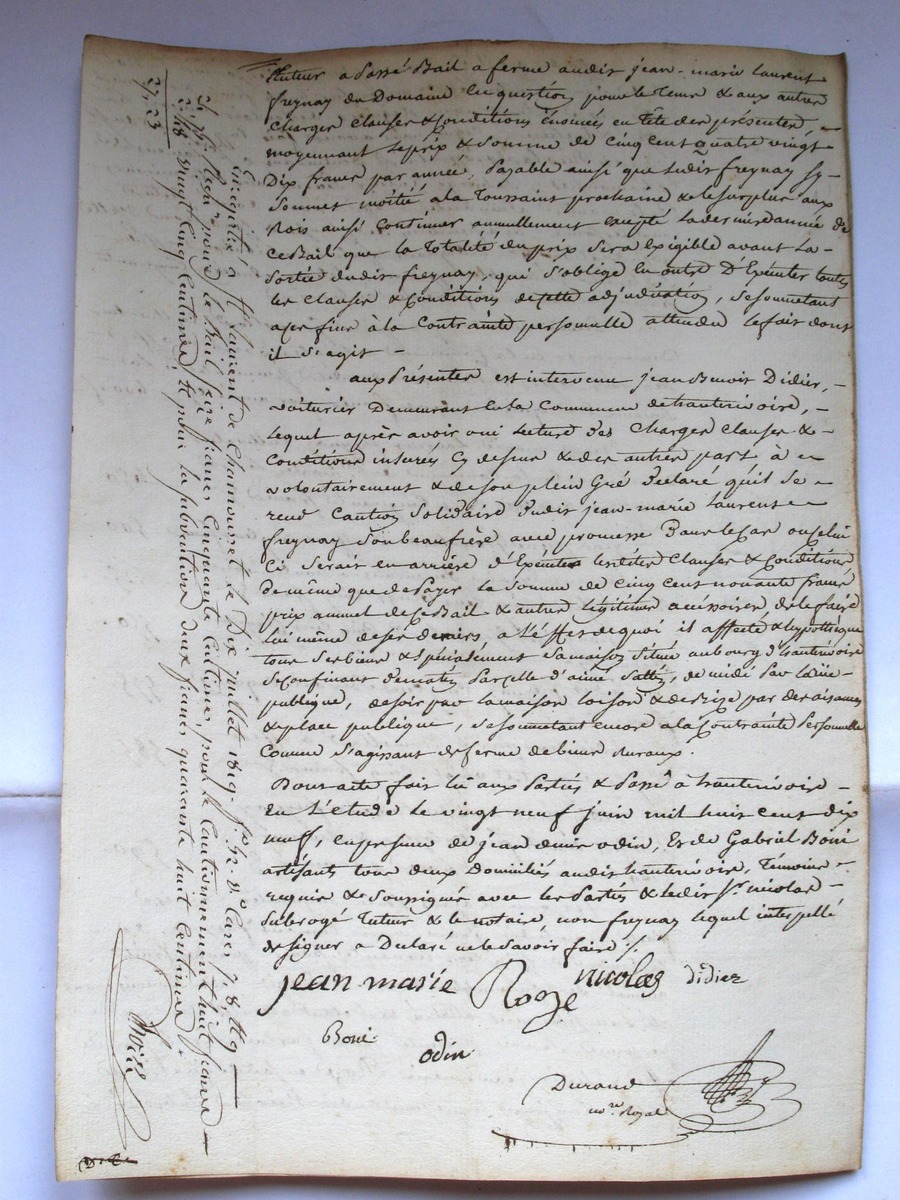 tuteur a passé Bail a ferme audit jean-marie Laurent
freynay du Domaine en question pour le tems & aux autres
charges clauses & Conditions énoncées en tête des présentes
moyennant le prix & somme de cinq cent quatre vingt
Dix francs par année, payable ainsi que ledit freynay s'y
soumet moitié a la Toussaint prochaine & le surplus aux
Rois ainsi Continuer annuellement excepté la derniere année de
ce Bail que la Totalité du prix sera Exigible avant la
sortie dudit freynay, qui s'oblige en outre D'Exécuter toutes
les Clauses & Conditions de cette adjudication, se soumetant
a ces fins à la Contrainte personnelle attendu le fait dont
il s'agit -
aux Présentes est intervenu jean Benoit Didier, -
voiturier Demeurant en la Commune de hauterivoire, -
Lequel après avoir oui Lecture des Charges Clauses &
Conditions insérées Cy dessus & des autres parts à
volontairement & de son plein Gré Déclaré qu'il se
rend Caution solidaire dudit jean-marie Laurent
freynay son beaufrère avec promesse Dans le Cas ou celui
Ci serait en arrière d'Exécuter lesdites Clauses & Conditions
De même que de Payer la somme de Cinq Cent nonante francs
prix annuel de ce Bail & autres légitimes accessoires, de le faire
Lui même de ses deniers, a L'effet de quoi il affecte & hypothèque
tous ses biens & spécialement sa maison située au bourg d'hauterivoire
se Confinant de matin par celle d'aimé , de midi par la rue
publique, de soir par la maison loison & de bize par des aisances
& place publique, se soumetant encore a la Contrainte Personnelle
Comme s'agissant de ferme de biens ruraux.
Dont acte fait lu aux Parties & Passé à hauterivoire
en L'étude le vingt neuf juin mil huit cent dix
neuf, en presence de jean denis odin, Et de Gabriel Boni
artisants tous deux Domiciliés audit hauterivoire, Témoins
requis & soussignés avec les Parties & ledit Sr. nicolas
subrogé tuteur & le notaire, non freynay lequel interpellé
de signer a Déclaré ne le savoir faire ./.
jean marie Roze nicolas didier
Boni odin
Durand
nore. Royal
Enregistré à St Laurent de Chamousset le Dix juillet 1819. fo. 92. Vo. Cases 7, 8, & 9
pour le Bail seize francs Cinquante Centimes, pour le Cautionnement huit francs
vingt Cinq Centimes, & pour la subvention deux francs quarante huit Centimes.
2, 48
27, 23